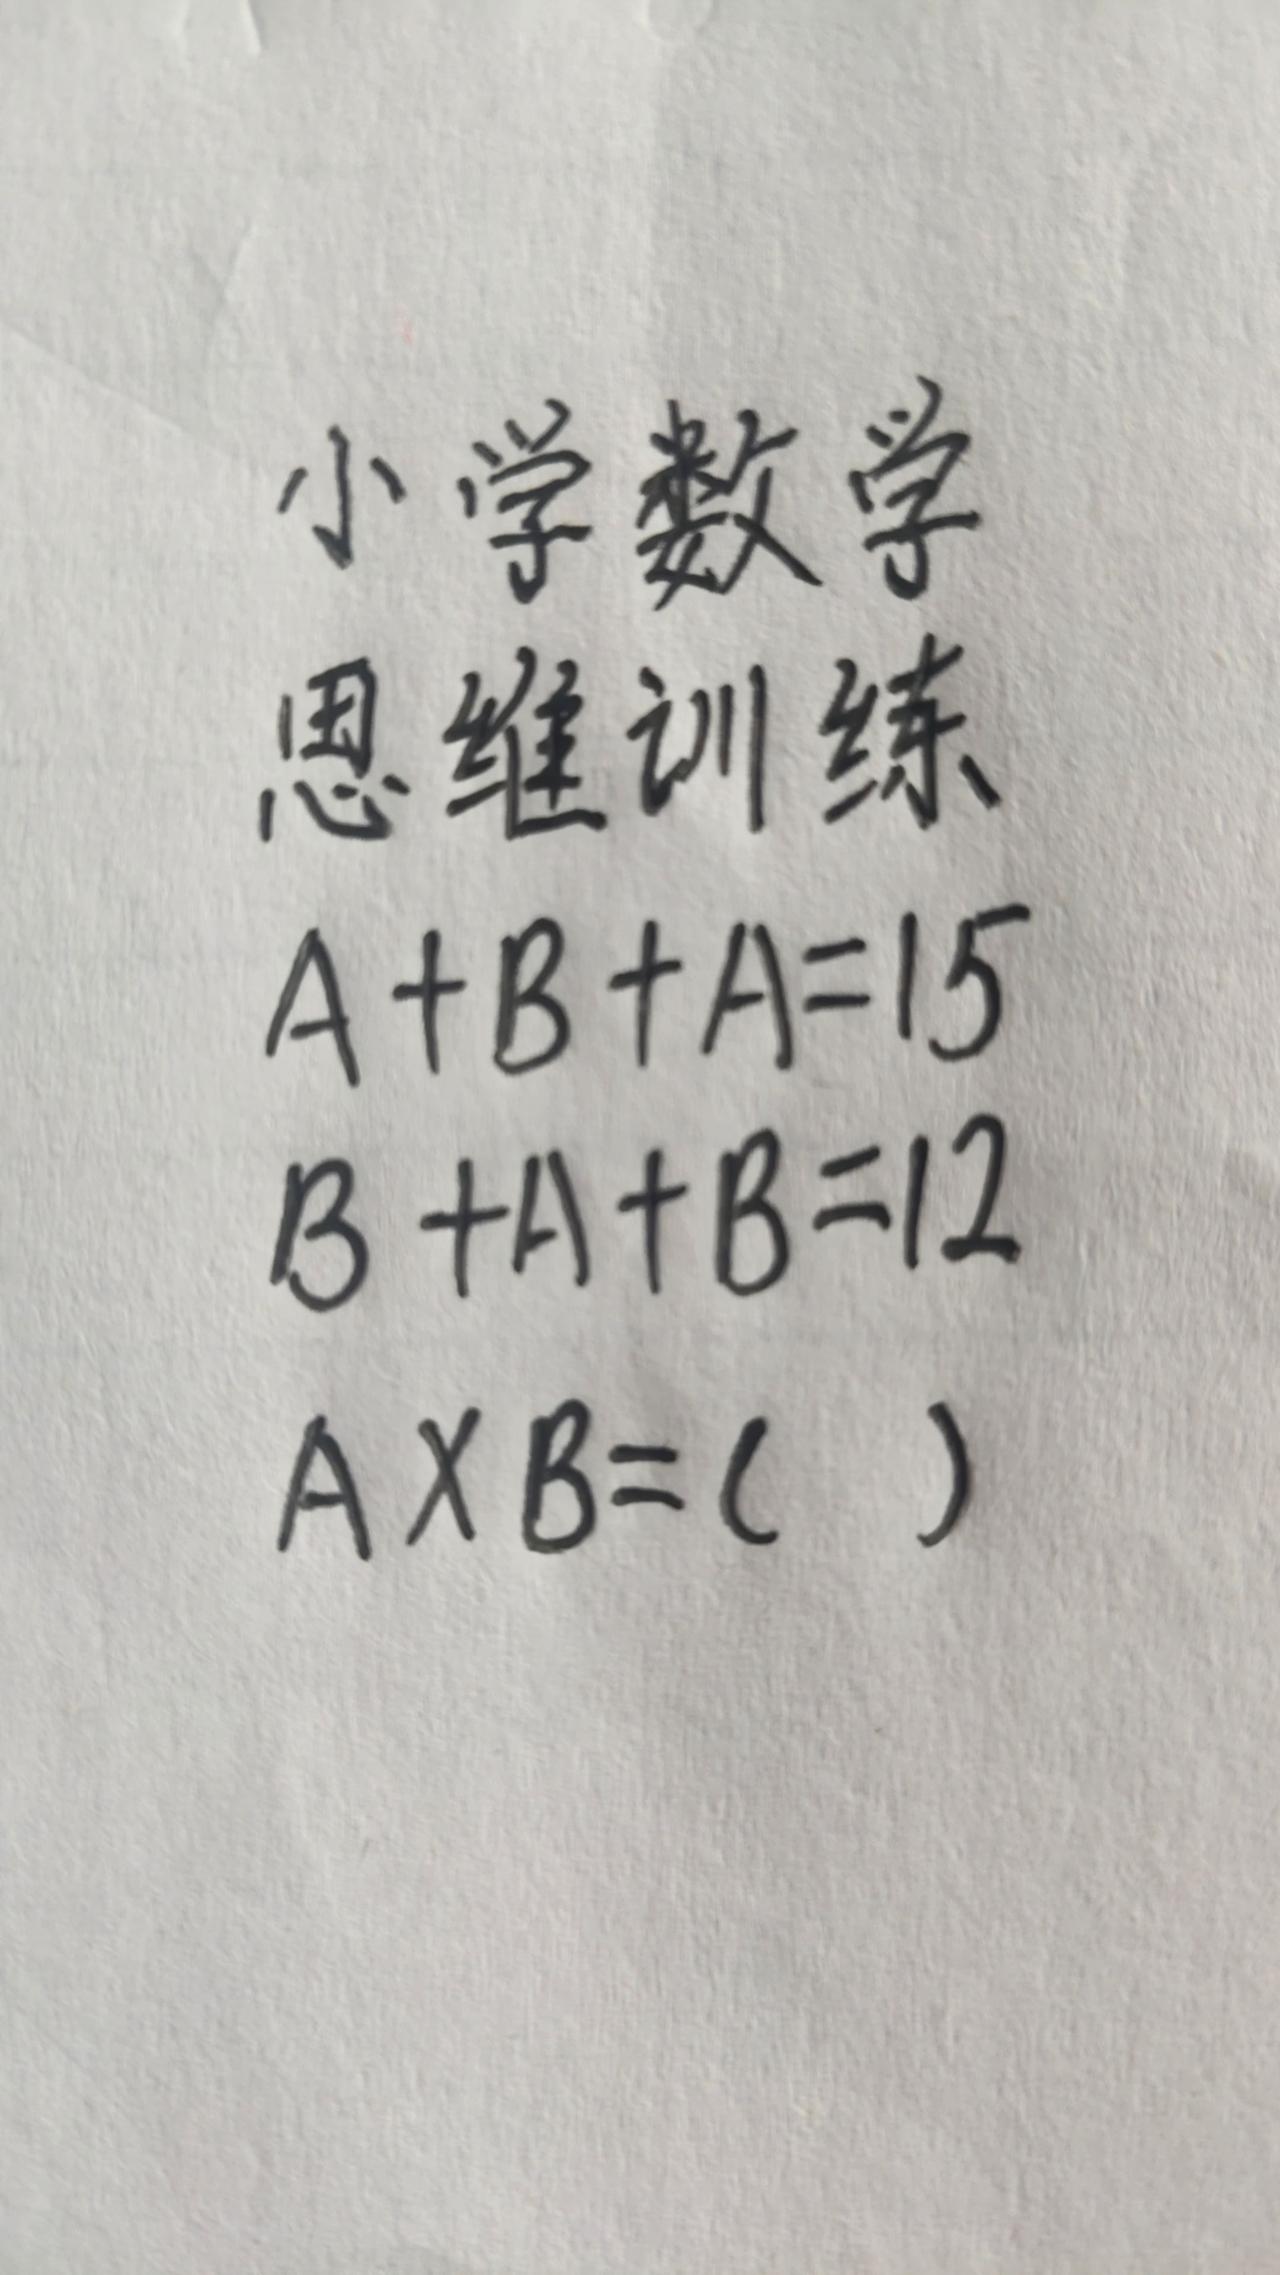 小学数学
思维训练
A+B+A=15
B+A+B=12
A×B=( )